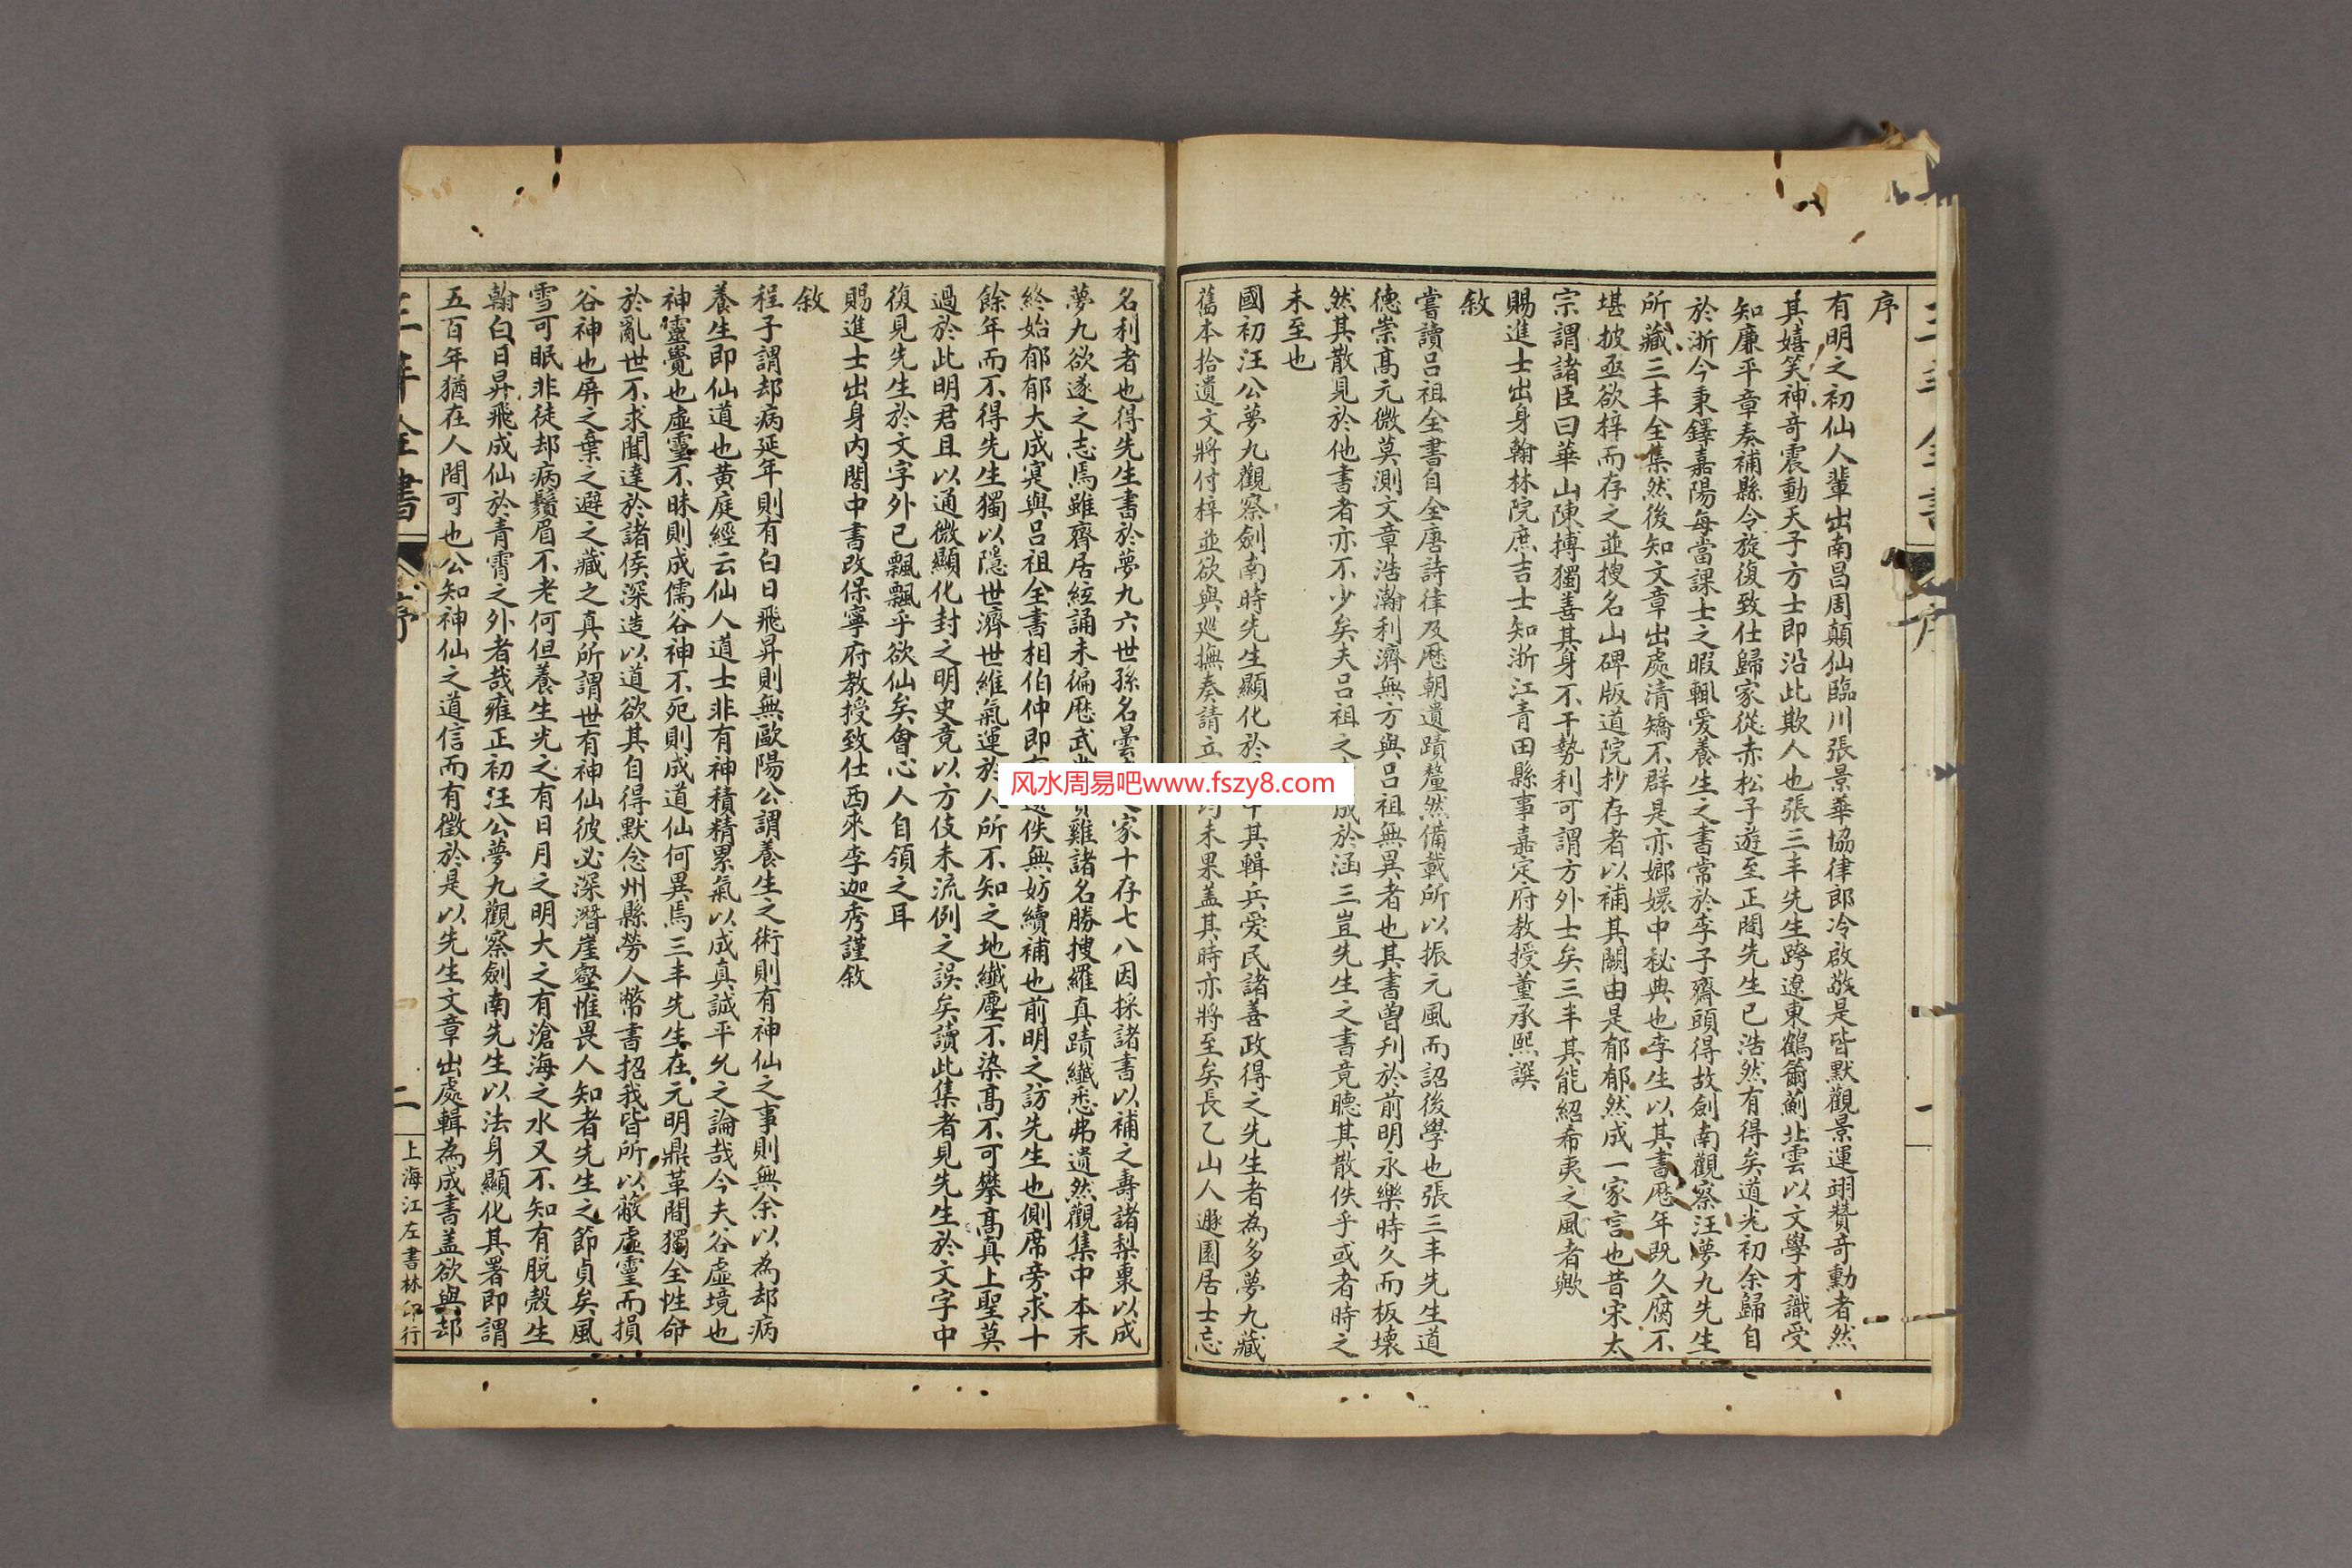 序
有明之初仙人輩出南昌周顛仙臨川張景華協律郎冷啟敬是皆默觀景運翊贊奇勳者然
其嬉笑神奇震動天子方士即沿此欺人也張三丰先生跨遼東鶴薊北雲以文學才識受
知廉平章奏補縣令旋復致仕歸家從赤松子遊至正間先生已浩然有得矣道光初余歸自
於浙今秉鐸嘉陽每當課士之暇輒愛養生之書常於李子齋頭得故劍南觀察汪夢九先生
所藏三丰全集然後知文章出處清矯不群是亦嫏嬛中秘典也李生以其書歷年既久腐不
堪披亟欲梓而存之並搜名山碑版道院抄存者以補其闕由是郁郁然成一家言也昔宋太
宗謂諸臣曰華山陳摶獨善其身不干勢利可謂方外士矣三丰其能紹希夷之風者歟
賜進士出身翰林院庶吉士知浙江青田縣事嘉定府教授董承熙譔
敘
嘗讀呂祖全書自全唐詩律及歷朝遺蹟釐然備載所以振元風而詔後學也張三丰先生道
德崇高元微莫測文章浩瀚利濟無方與呂祖無異者也其書曾刊於前明永樂時久而板壞
然其散見於他書者亦不少矣夫呂祖之成於涵三豈先生之書竟聽其散佚乎或者時之
未至也
國初汪公夢九觀察劍南時先生顯化於其輯兵愛民諸善政得之先生者為多夢九藏
舊本拾遺文將付梓並欲與巡撫奏請立均未果蓋其時亦將至矣長乙山人遯園居士忘
名利者也得先生書於夢九六世孫名曇家十存七八因採諸書以補之壽諸梨棗以成
夢九欲遂之志焉雖齋居絃誦未徧歷武雞諸名勝搜羅真蹟纖悉弗遺然觀集中本末
終始郁郁大成寔與呂祖全書相伯仲即佚無妨續補也前明之訪先生也側席旁求十
餘年而不得先生獨以隱世濟世維氣運於人所不知之地纖塵不染高不可攀高真上聖莫
過於此明君且以通微顯化封之明史竟以方伎末流例之誤矣讀此集者見先生於文字中
復見先生於文字外已飄飄乎欲仙矣會心人自領之耳
賜進士出身內閣中書改保寧府教授致仕西來李迦秀謹敘
敘
程子謂却病延年則有白日飛昇則無歐陽公謂養生之術則有神仙之事則無余以為却病
養生即仙道也黃庭經云仙人道士非有神積精累氣以成真誠平允之論哉今夫谷虛境也
神靈覺也虛靈不昧則成儒谷神不死則成道仙何異焉三丰先生在元明鼎革間獨全性命
於亂世不求聞達於諸侯深造以道欲其自得默念州縣勞人幣書招我皆所以敝虛靈而損
谷神也屏之棄之避之藏之真所謂世有神仙彼必深潛崖壑惟畏人知者先生之節貞矣風
雪可眠非徒却病鬚眉不老何但養生光之有日月之明大之有滄海之水又不知有脱殼生
翰白日昇飛成仙於青霄之外者哉雍正初汪公夢九觀察劍南先生以法身顯化其署即謂
五百年猶在人間可也公知神仙之道信而有徵於是以先生文章出處輯為成書蓋欲與却
三丰全書
序
二
上海江左書林印行
风水周易吧www.fszy8.com